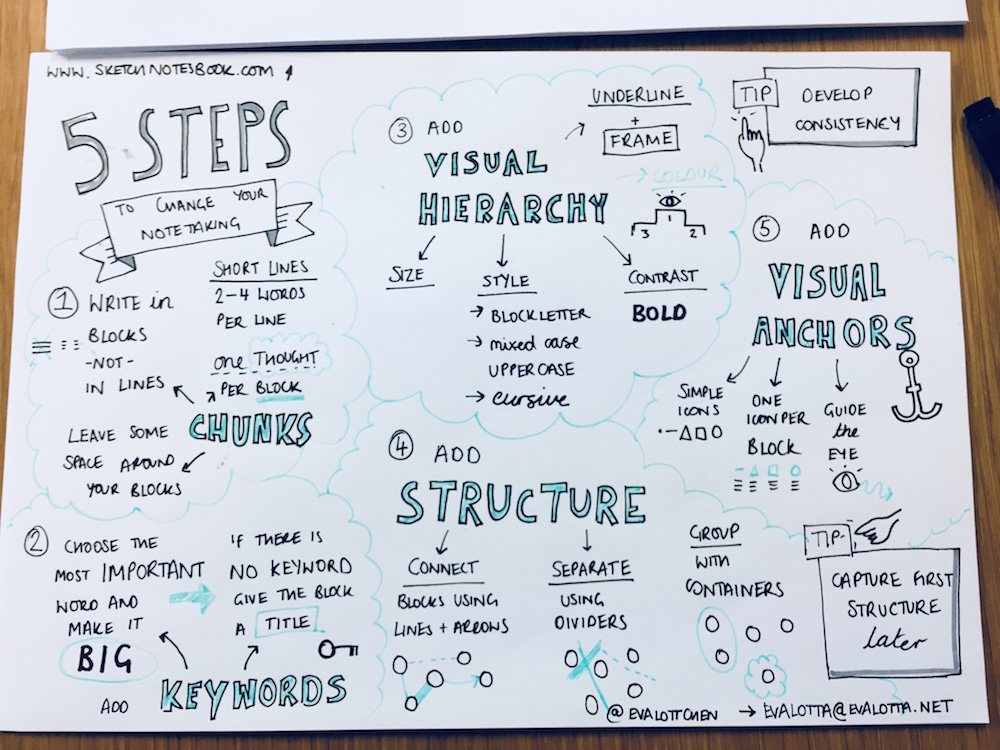 WWW.SKETCHNOTESBOOK.COM
5 STEPS
TO CHANGE YOUR
NOTETAKING
1 WRITE in
BLOCKS
-NOT-
IN LINES
SHORT LINES
2-4 WORDS
PER LINE
one THOUGHT
PER BLOCK
CHUNKS
LEAVE SOME
SPACE AROUND
YOUR BLOCKS
2 CHOOSE THE
MOST IMPORTANT
WORD AND
MAKE IT
BIG
IF THERE IS
NO KEYWORD
GIVE THE BLOCK
A TITLE
ADD KEYWORDS
3 ADD
VISUAL
HIERARCHY
UNDERLINE
+
FRAME
→ COLOUR
1
3 2
SIZE
STYLE
→ BLOCKLETTER
→ mixed case
UPPERCASE
→ cursive
CONTRAST
BOLD
4 ADD
STRUCTURE
CONNECT
BLOCKS USING
LINES + ARROWS
SEPARATE
USING
DIVIDERS
GROUP
WITH
CONTAINERS
TIP
DEVELOP
CONSISTENCY
5 ADD
VISUAL
ANCHORS
SIMPLE
ICONS
ONE
ICON PER
BLOCK
GUIDE
the
EYE
TIP
CAPTURE FIRST
STRUCTURE
Later
@EVALOTTCHEN → EVALOTTA@EVALOTTA.NET